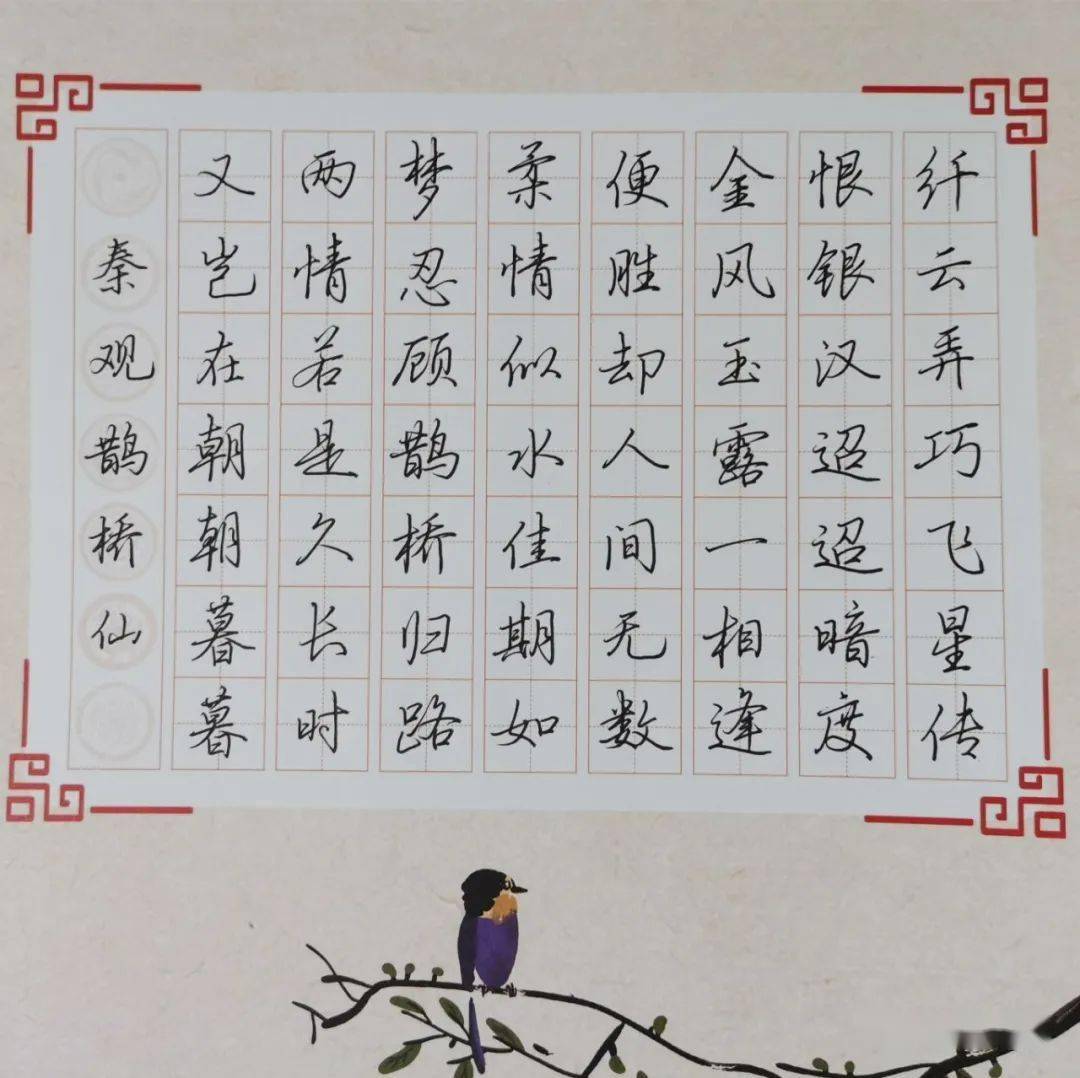 纤云弄巧飞星传
恨银汉迢迢暗度
金风玉露一相逢
便胜却人间无数
柔情似水佳期如
梦忍顾鹊桥归路
两情若是久长时
又岂在朝朝暮暮
秦观鹊桥仙